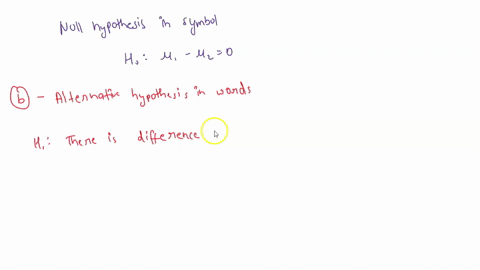 Null hypothesis in symbol
H₀: μ₁ - μ₂ = 0
b - Alternative hypothesis in words
H₁: There is difference